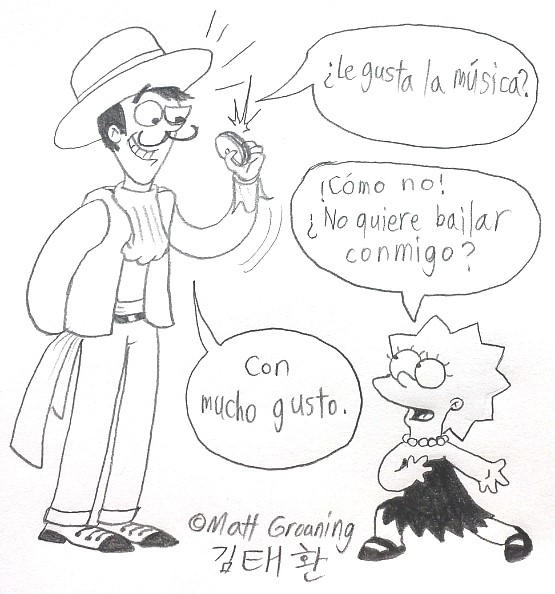 ¿Le gusta la música?
¡Cómo no!
¿No quiere bailar
conmigo?
Con
mucho gusto.
©Matt Groaning
김태환